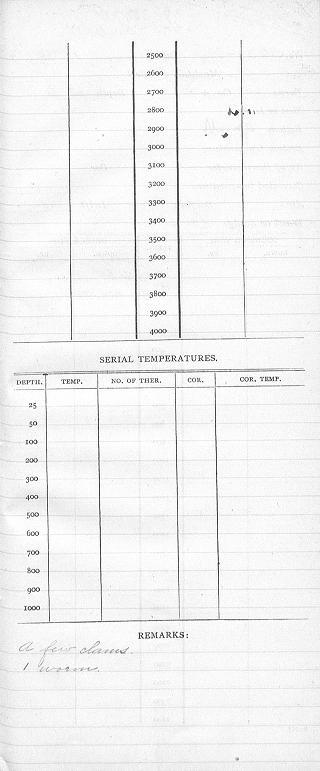 2500
2600
2700
2800
2900
3000
3100
3200
3300
3400
3500
3600
3700
3800
3900
4000
SERIAL TEMPERATURES.
DEPTH. TEMP. NO. OF THER. COR. COR. TEMP.
25
50
100
200
300
400
500
600
700
800
900
1000
REMARKS:
A few clams.
1 worm.